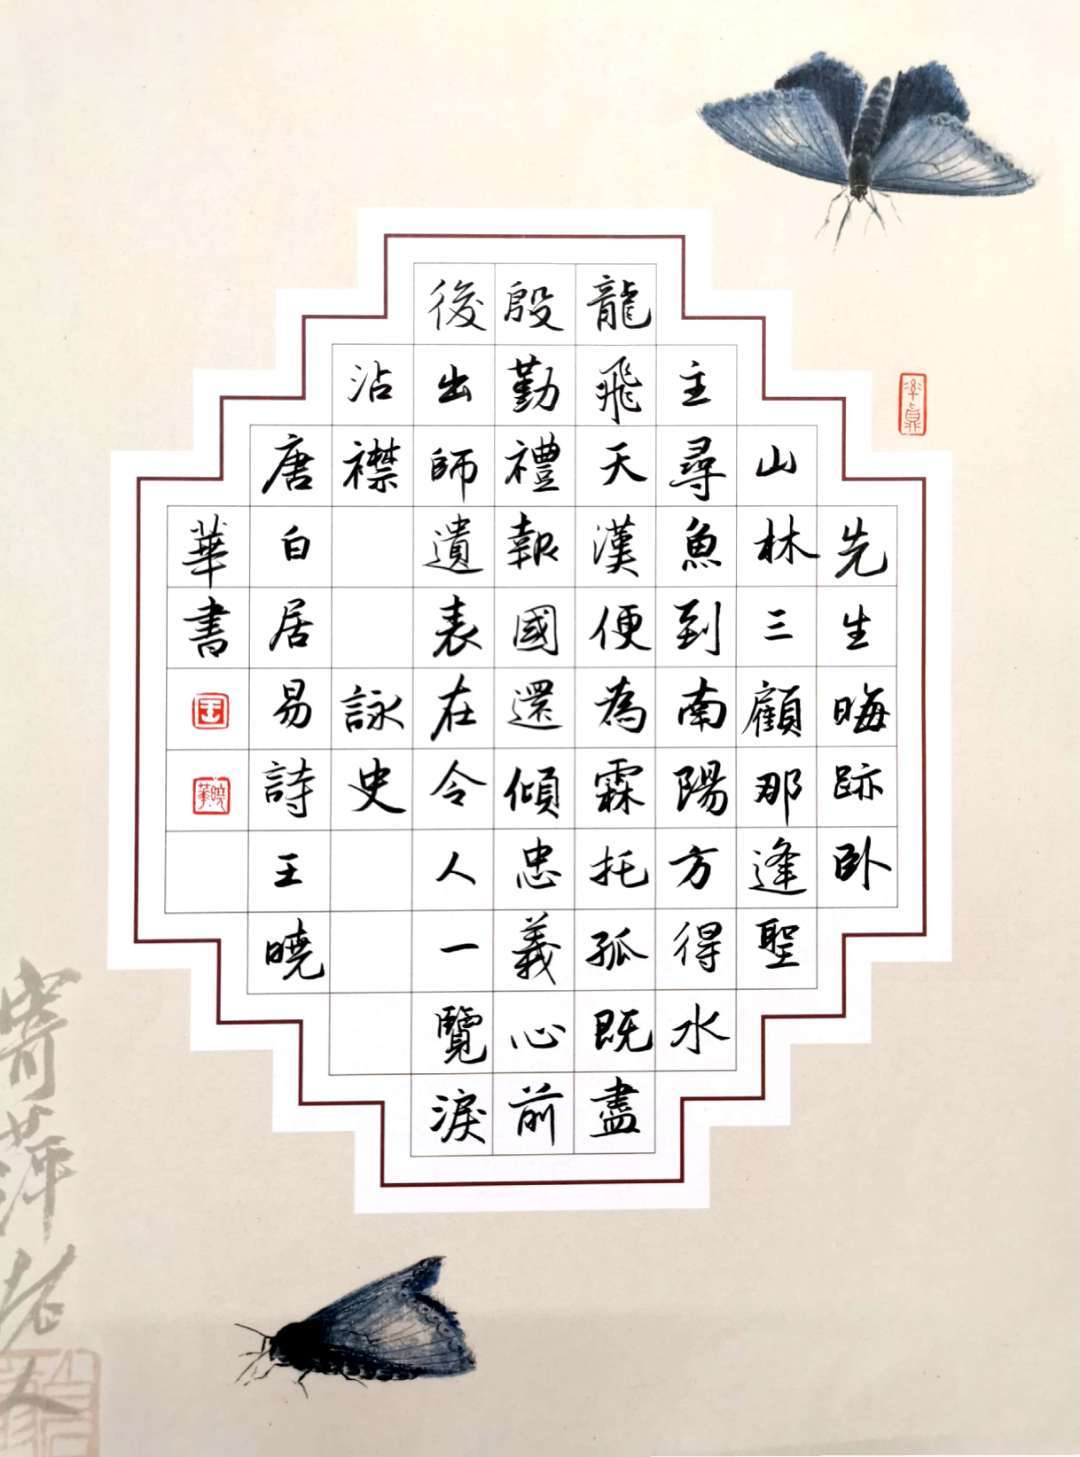 先生晦跡卧
山林三顧那逢聖
主尋魚到南陽方得水
龍飛天漢便為霖托孤既盡
殷勤禮報國還傾忠義心前
後出師遺表在令人一覽淚
沾襟 詠史
唐白居易詩王曉
華書
王
曉華
寄萍老人